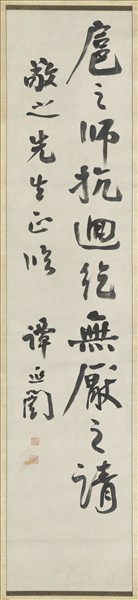 扈之師抗迴紇無厭之請
敬之先生正臨
譚延闓